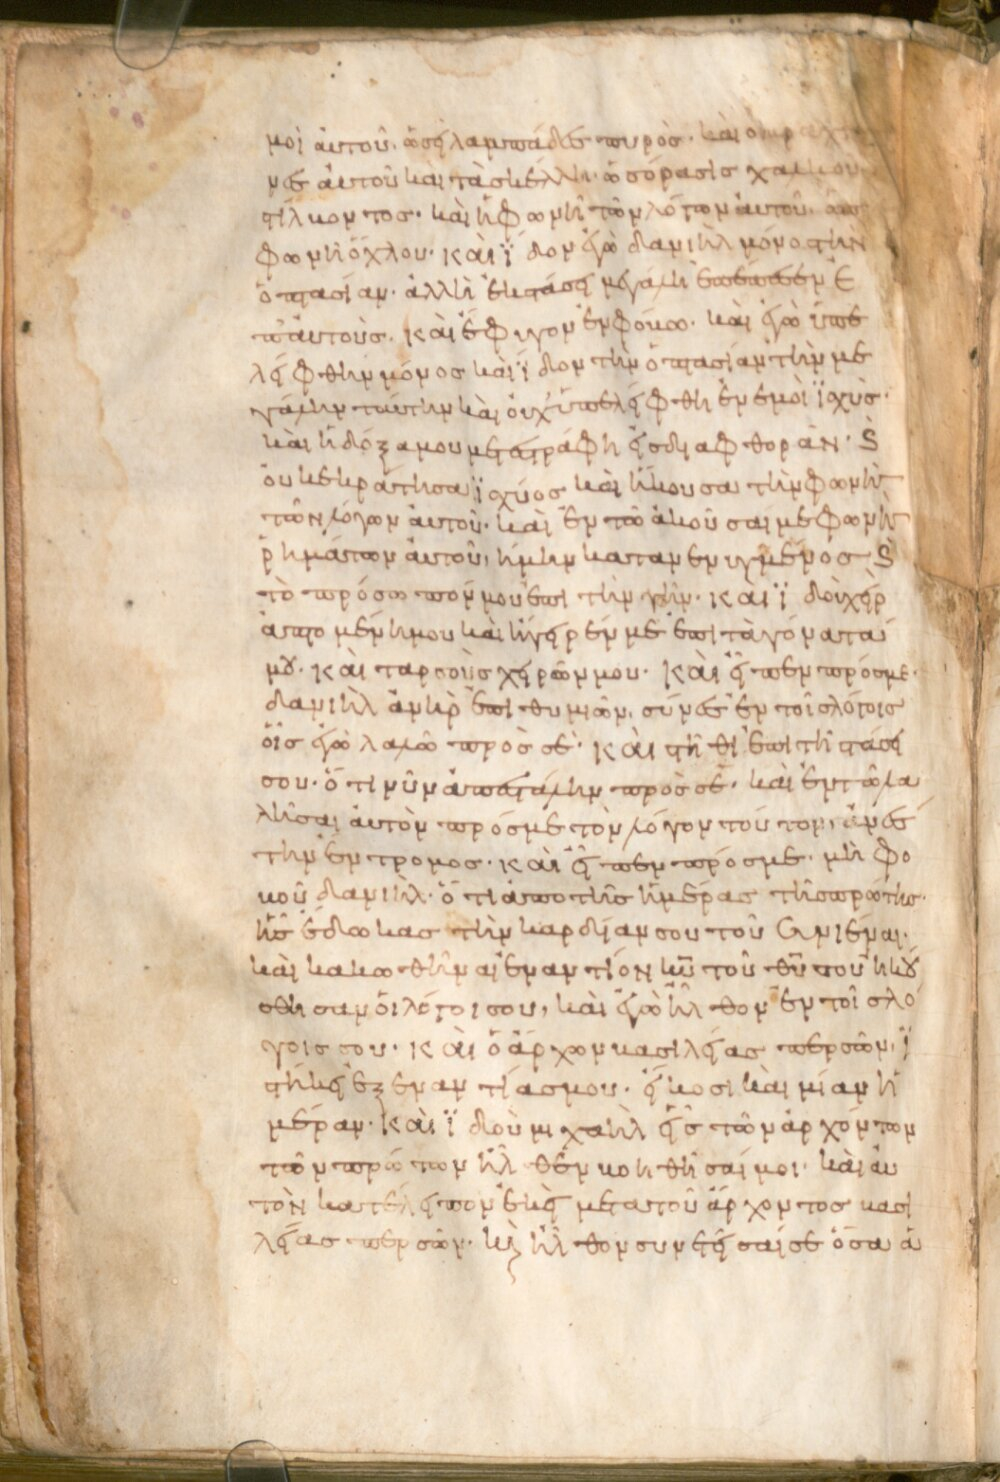 μοὶ ἀυτοῦ. ὡσεὶ λαμπάδες πυρὸς. καὶ ὁι βραχίο
νες ἀυτοῦ καὶ τὰ σκέλλη. ὡς ὅρασις χαλκοῦ
στίλβοντος. καὶ ἡ φωνὴ τῶν λόγων ἀυτοῦ. ὡς
φωνὴ ὄχλου. καὶ ἴδον ἐγὼ δανιὴλ μόνος τὴν
ὀπτασίαν. ἀλλ ἢ ἔκστασει μεγάλη ἐπέπεσεν ἐ
π ἀυτοὺς. καὶ ἔφυγον ἐν φόβω. καὶ ἐγὼ ὑπε
λείφθην μόνος καὶ ἴδον τὴν ὀπτασίαν τὴν με
γάλην ταύτην καὶ ὀυχ ὑπελείφθη ἐν ἐμοὶ ἰσχὺς.
καὶ ἡ δόξα μου μετεστράφη εἰς διαφθορὰν. Ϗ
ὀυκ ἐκράτησα ἰσχύος καὶ ἤκουσα τὴν φωνὴν
τῶν λόγων ἀυτοῦ. καὶ ἐν τῶ ἀκοῦσαί με φωνὴν
ῥημάτων ἀυτοῦ, ἤμην κατανενυγμένος Ϗ
τὸ πρόσωπόν μου ἐπὶ τὴν γὴν. καὶ ἰδοὺ χεὶρ
ἁπτομένη μου καὶ ἤγειρέν με ἐπὶ τὰ γόνατά
μου. καὶ ταρσοὺς χειρῶν μου. καὶ εἶπεν πρός με.
δανιὴλ ἀνὴρ ἐπιθυμιῶν, σύνες ἐν τοῖς λόγοις
ὅις ἐγὼ λαλῶ πρὸς σὲ. καὶ στῆθι ἐπὶ τῆ στάσει
σου. ὅτι νῦν ἀπεστάλην πρὸς σὲ. καὶ ἐν τῶ λα
λῆσαι ἀυτὸν πρός με τὸν λόγον τοῦτον, ἀνέσ
την ἔντρομος. καὶ εἶπεν πρός με. μὴ φο
βοῦ δανιὴλ. ὅτι ἀπὸ τῆς ἡμέρας τῆς πρώτης.
ἧς ἔδωκας τὴν καρδίαν σου τοῦ συνιέναι.
καὶ κακωθῆναι ἐναντίον κυ τοῦ θυ σου ἠκού
σθησαν ὁι λόγοι σου, καὶ ἐγὼ ἦλθον ἐν τοῖς λό
γοις σου. καὶ ὁ ἄρχων βασιλείας περσῶν. ἱ
στήκει ἐξ εναντίας μου. εἴκοσι καὶ μίαν ἡ
μέραν. καὶ ἰδοὺ μιχαὴλ εἷς τῶν ἀρχόντων
τῶν πρώτων ἦλθεν βοηθῆσαί μοι. καὶ ἀυ
τὸν κατέλειπον ἐκεῖ μετα τοῦ ἄρχοντος βασι
λείας περσῶν. κὶ ἦλθον συνετείσαί σε ὅσα ἀ